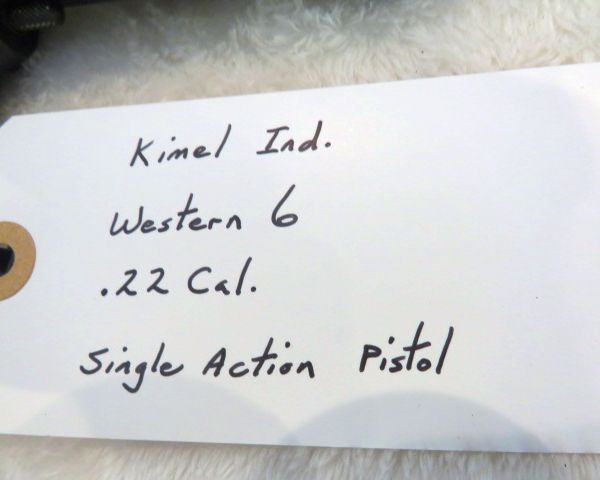 Kimel Ind.
Western 6
.22 Cal.
Single Action Pistol